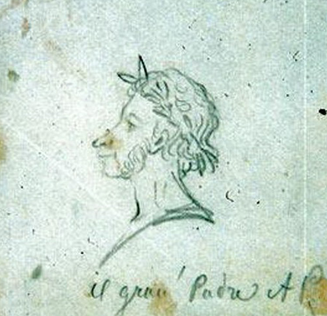 il gran' Padre A P